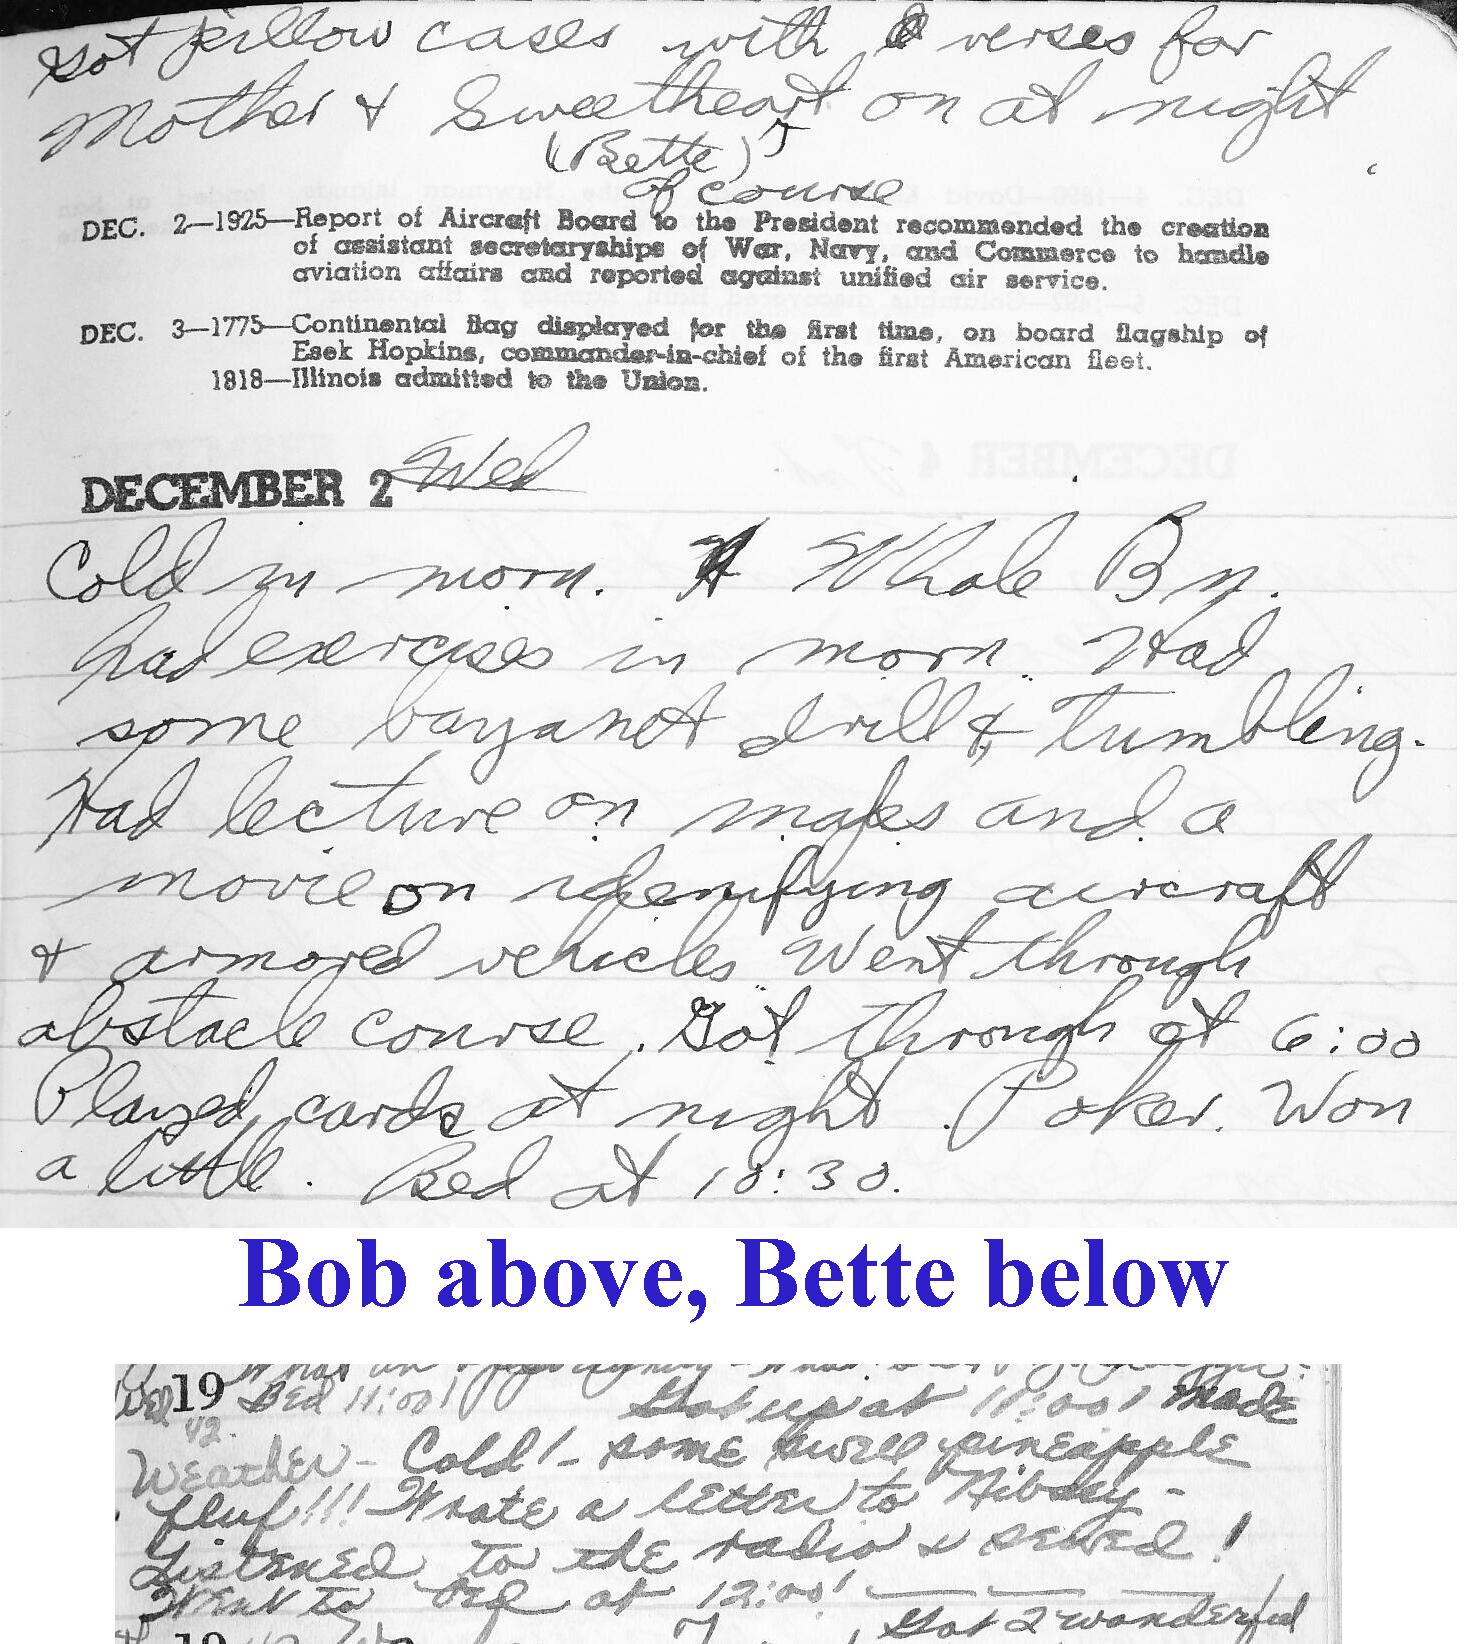 Got pillow cases with verses for
Mother & Sweetheart on at night
(Bette)
of course
DEC. 2—1925—Report of Aircraft Board to the President recommended the creation
of assistant secretaryships of War, Navy, and Commerce to handle
aviation affairs and reported against unified air service.
DEC. 3—1775—Continental flag displayed for the first time, on board flagship of
Esek Hopkins, commander-in-chief of the first American fleet.
1818—Illinois admitted to the Union.
DECEMBER 2 Wed
Cold in morn. Whole Bn.
had exercises in morn. Had
some bayanet drill & tumbling.
Had lecture on maps and a
movie on idenifying aircraft
& armored vehicles Went through
abstacle course. Got through at 6:00
Played cards at night. Poker. Won
a little. Bed at 10:30.
Bob above, Bette below
Wed 19 Bed 11:00! Got up at 11:00! Made
42.
Weather - Cold! - some swell pineapple
fluf!!! Wrote a letter to -
Listened to the radio & sewed!
Went to bed at 12:00!
Got 2 wonderful
19